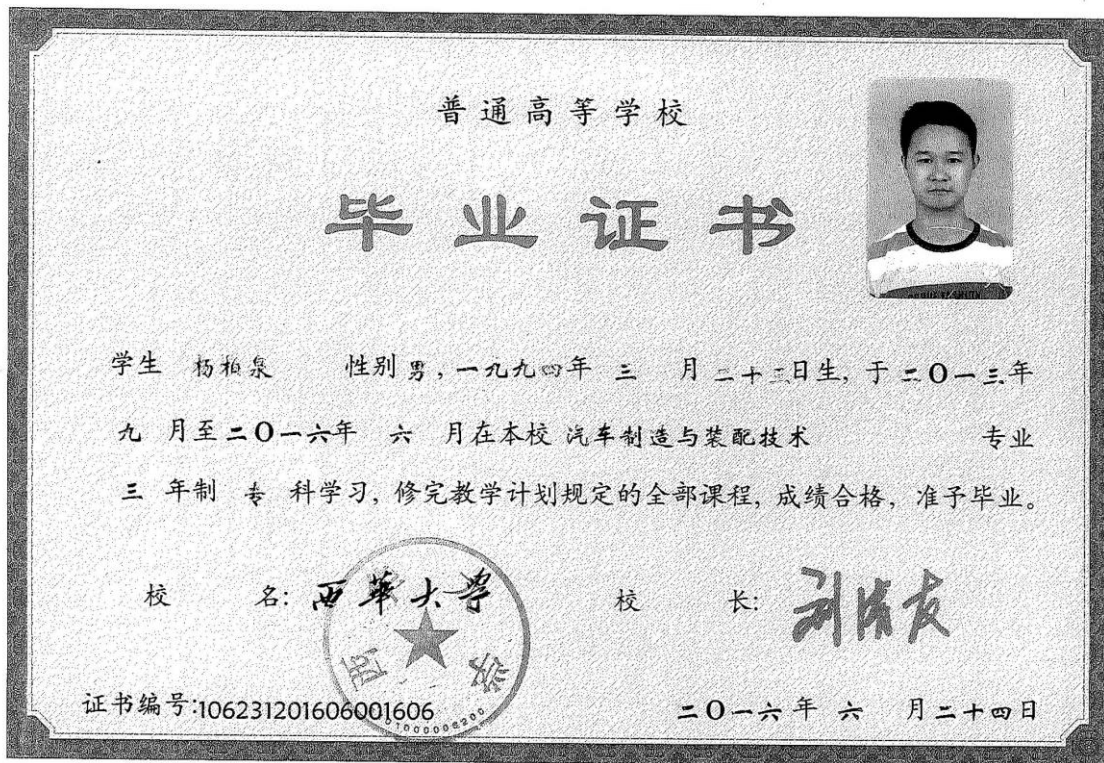 普通高等学校
毕业证书
学生 杨柏泉 性别 男，一九九四年 三 月 二十三日生，于二〇一三年
九 月至二〇一六年 六 月在本校 汽车制造与装配技术 专业
三 年制 专 科学习，修完教学计划规定的全部课程，成绩合格，准予毕业。
校 名：西华大学 校 长：刘清友
西 学
证书编号:106231201606001606 二〇一六年 六 月二十四日